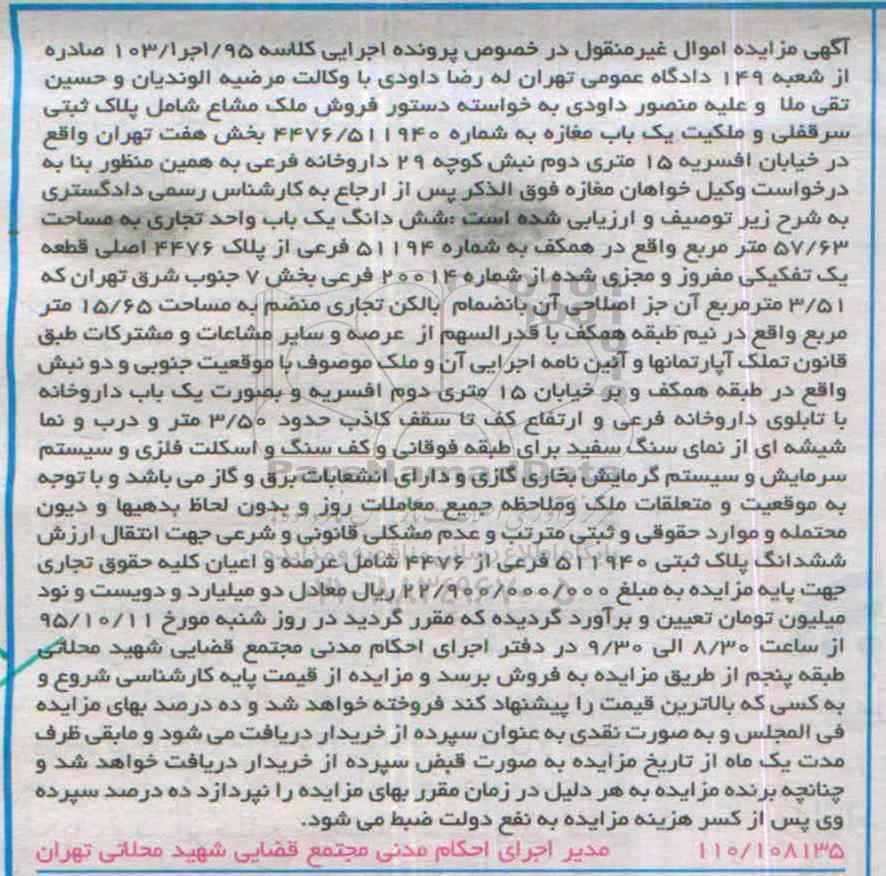 آگهی مزایده اموال غیرمنقول در خصوص پرونده اجرایی کلاسه ۹۵/اجرا/۱۰۳ صادره
از شعبه ۱۴۹ دادگاه عمومی تهران له رضا داودی با وکالت مرضیه الوندیان و حسین
تقی ملا و علیه منصور داودی به خواسته دستور فروش ملک مشاع شامل پلاک ثبتی
سرقفلی و ملکیت یک باب مغازه به شماره ۴۴۷۶/۵۱۱۹۴۰ بخش هفت تهران واقع
در خیابان افسریه ۱۵ متری دوم نبش کوچه ۲۹ داروخانه فرعی به همین منظور بنا به
درخواست وکیل خواهان مغازه فوق الذکر پس از ارجاع به کارشناس رسمی دادگستری
به شرح زیر توصیف و ارزیابی شده است :شش دانگ یک باب واحد تجاری به مساحت
۵۷/۶۳ متر مربع واقع در همکف به شماره ۵۱۱۹۴ فرعی از پلاک ۴۴۷۶ اصلی قطعه
یک تفکیکی مفروز و مجزی شده از شماره ۲۰۰۱۴ فرعی بخش ۷ جنوب شرق تهران که
۳/۵۱ مترمربع آن جز اصلاحی آن بانضمام بالکن تجاری منضم به مساحت ۱۵/۶۵ متر
مربع واقع در نیم طبقه همکف با قدرالسهم از عرصه و سایر مشاعات و مشترکات طبق
قانون تملک آپارتمانها و آئین نامه اجرایی آن و ملک موصوف با موقعیت جنوبی و دو نبش
واقع در طبقه همکف و بر خیابان ۱۵ متری دوم افسریه و بصورت یک باب داروخانه
با تابلوی داروخانه فرعی و ارتفاع کف تا سقف کاذب حدود ۳/۵۰ متر و درب و نما
شیشه ای از نمای سنگ سفید برای طبقه فوقانی و کف سنگ و اسکلت فلزی و سیستم
سرمایش و سیستم گرمایش بخاری گازی و دارای انشعابات برق و گاز می باشد و با توجه
به موقعیت و متعلقات ملک وملاحظه جمیع معاملات روز و بدون لحاظ بدهیها و دیون
محتمله و موارد حقوقی و ثبتی مترتب و عدم مشکلی قانونی و شرعی جهت انتقال ارزش
ششدانگ پلاک ثبتی ۵۱۱۹۴۰ فرعی از ۴۴۷۶ شامل عرصه و اعیان کلیه حقوق تجاری
جهت پایه مزایده به مبلغ ۲۲/۹۰۰/۰۰۰/۰۰۰ ریال معادل دو میلیارد و دویست و نود
میلیون تومان تعیین و برآورد گردیده که مقرر گردید در روز شنبه مورخ ۹۵/۱۰/۱۱
از ساعت ۸/۳۰ الی ۹/۳۰ در دفتر اجرای احکام مدنی مجتمع قضایی شهید محلاتی
طبقه پنجم از طریق مزایده به فروش برسد و مزایده از قیمت پایه کارشناسی شروع و
به کسی که بالاترین قیمت را پیشنهاد کند فروخته خواهد شد و ده درصد بهای مزایده
فی المجلس و به صورت نقدی به عنوان سپرده از خریدار دریافت می شود و مابقی ظرف
مدت یک ماه از تاریخ مزایده به صورت قبض سپرده از خریدار دریافت خواهد شد و
چنانچه برنده مزایده به هر دلیل در زمان مقرر بهای مزایده را نپردازد ده درصد سپرده
وی پس از کسر هزینه مزایده به نفع دولت ضبط می شود.
۱۱۰/۱۰۸۱۳۵ مدیر اجرای احکام مدنی مجتمع قضایی شهید محلاتی تهران
ParsNamadData